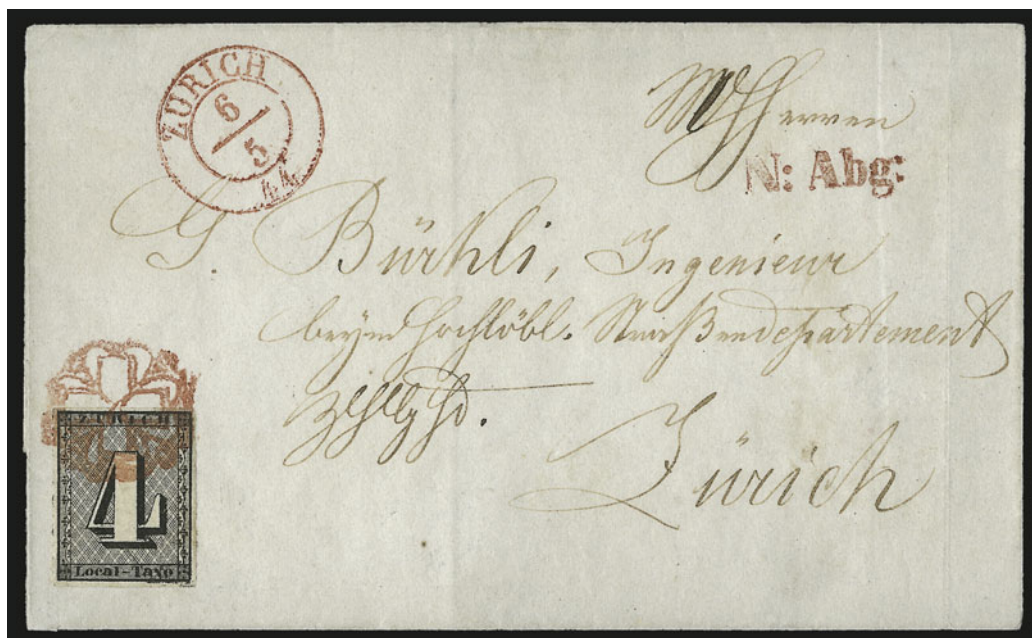 ZÜRICH
6/5
44
Herren
N: Abg:
G. Bürkli, Ingenieur
beym hochlöbl. Straßendepartement
Zürich
ZÜRICH
4
Local-Taxe